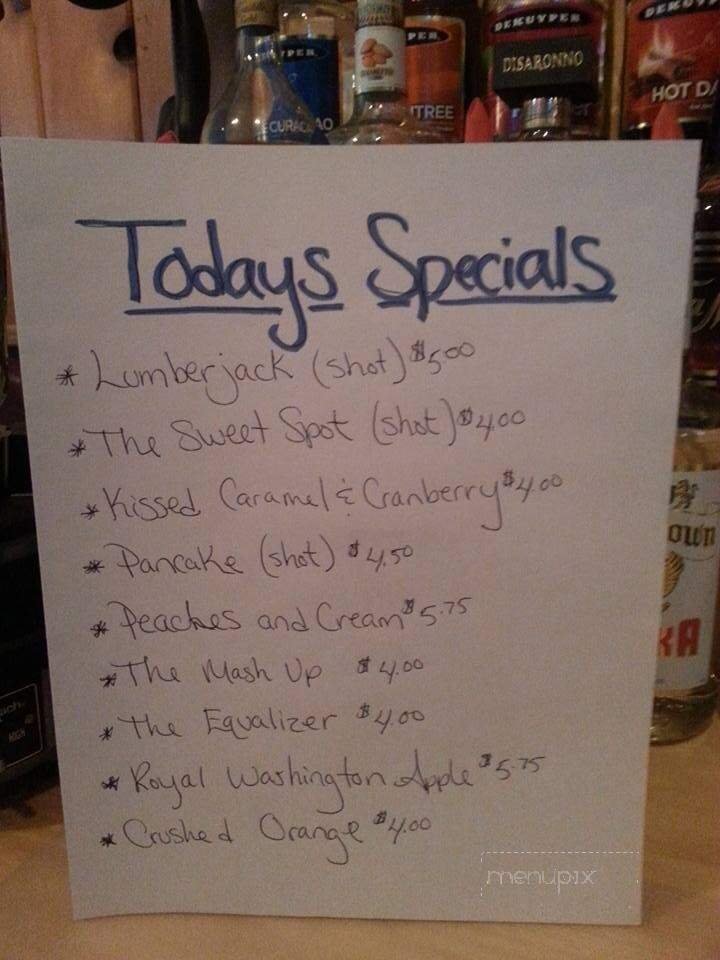 DEKUYPER
DEKUYPER
DISARONNO
CURACAO
TREE
HOT DA
Todays Specials
* Lumberjack (shot) $5.00
* The Sweet Spot (shot) $4.00
* Kissed Caramel & Cranberry $4.00
* Pancake (shot) $4.50
* Peaches and Cream $5.75
* The Mash Up $4.00
* The Equalizer $4.00
* Royal Washington Apple $5.75
* Crushed Orange $4.00
menupix